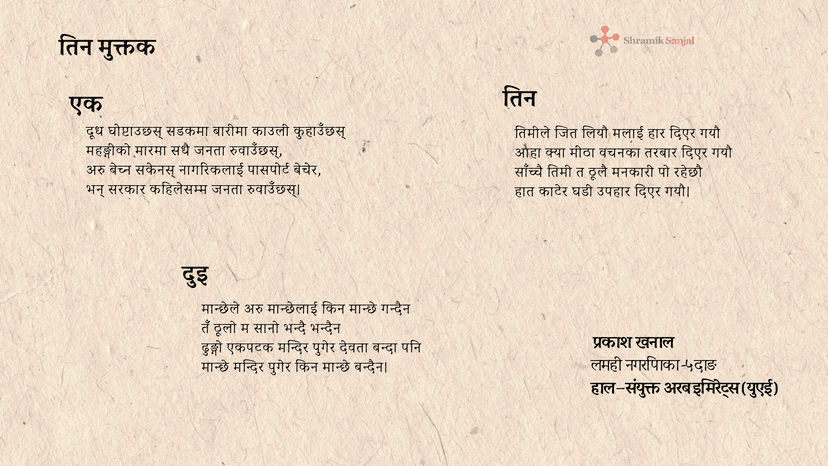 तिन मुक्तक
Shramik Sanjal
एक
दूध घोप्टाउछस् सडकमा बारीमा काउली कुहाउँछस्
महङ्गीको मारमा सधै जनता रुवाउँछस्,
अरु बेच्न सकेनस् नागरिकलाई पासपोर्ट बेचेर,
भन् सरकार कहिलेसम्म जनता रुवाउँछस्।
दुइ
मान्छेले अरु मान्छेलाई किन मान्छे गन्दैन
तँ ठूलो म सानो भन्दै भन्दैन
ढुङ्गो एकपटक मन्दिर पुगेर देवता बन्दा पनि
मान्छे मन्दिर पुगेर किन मान्छे बन्दैन।
तिन
तिमीले जित लियौ मलाई हार दिएर गयौ
औहा क्या मीठा वचनका तरबार दिएर गयौ
साँच्चै तिमी त ठूलै मनकारी पो रहेछौ
हात काटेर घडी उपहार दिएर गयौ।
प्रकाश खनाल
लमही नगरपिाका-५दाङ
हाल–संयुक्त अरब इमिरेट्स (युएई)